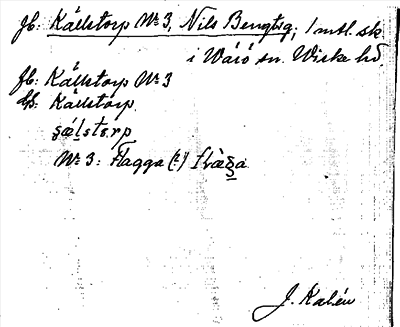 Jb: Källstorp No 3, Nils Bengtsg; 1 mtl. sk
i Wäró sn. Wiske hd.
Jb: Källstorp No 3
Us. Källstorp.
No 3: Flagga (:)
J. Kalén